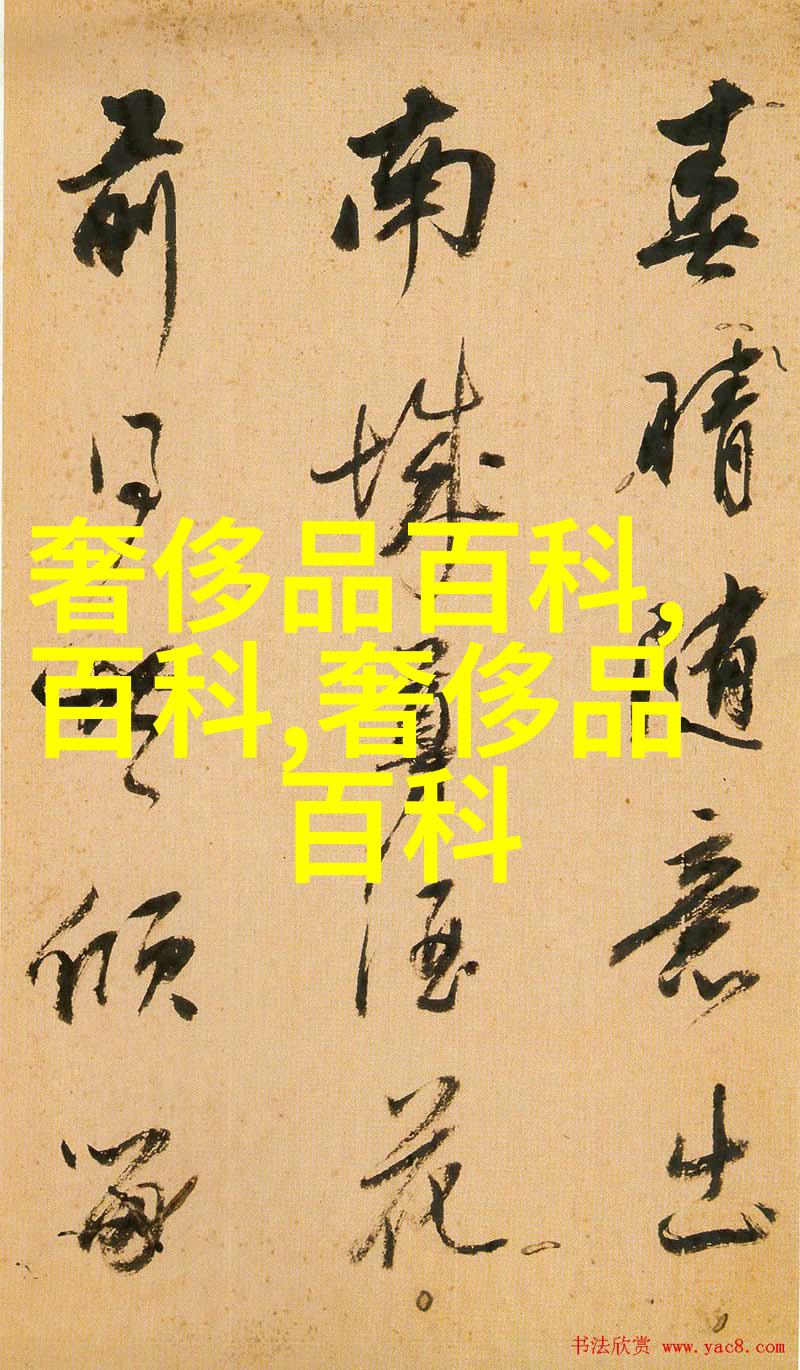 春晴隨意出
南城買酒花
前傾
奢侈品百科,
百科,奢侈品
百科
书法欣赏 www.yac8.com